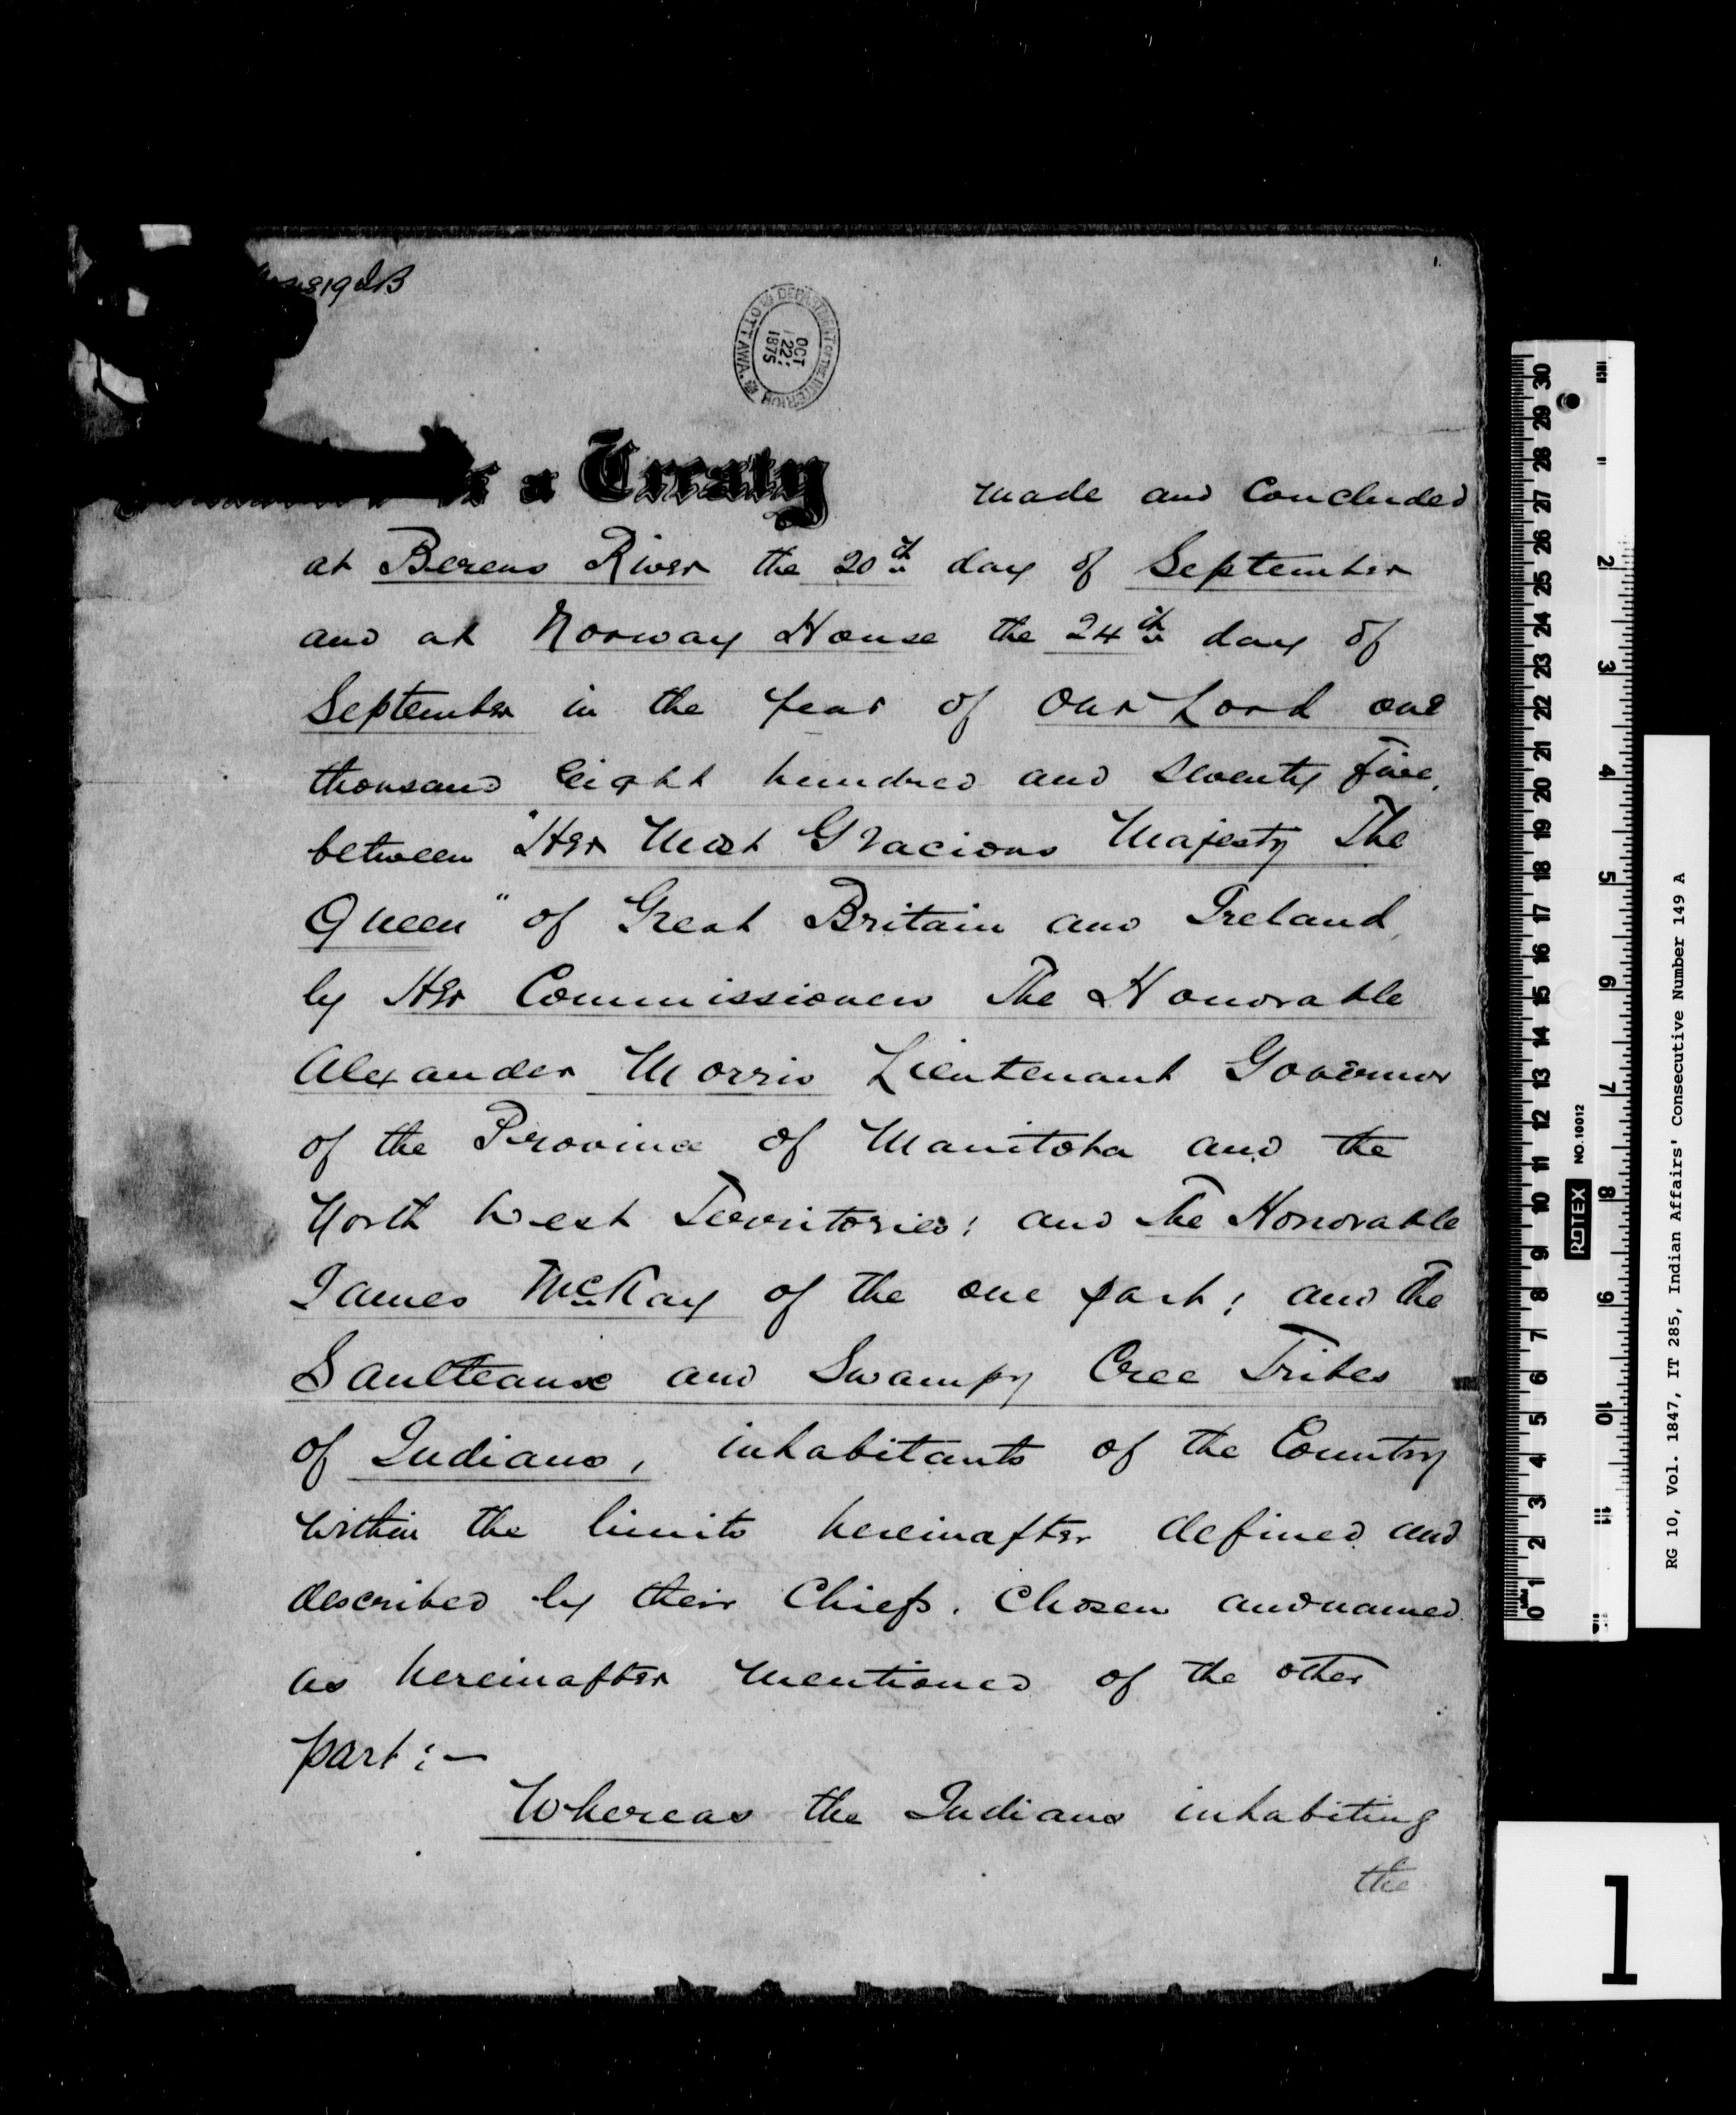 819 I B
1.
DEPARTMENT OF THE INTERIOR
OTTAWA.
OCT
22
1875
a Treaty made and Concluded
at Berens River the 20th day of September
and at Norway House the 24th day of
September in the year of Our Lord one
thousand eight hundred and seventy five,
between "Her Most Gracious Majesty The
Queen" of Great Britain and Ireland,
by Her Commissioners The Honorable
Alexander Morris Lieutenant Governor
of the Province of Manitoba and the
North West Territories; and The Honorable
James McKay of the one part; and the
Saulteaux and Swampy Cree Tribes
of Indians, inhabitants of the Country
within the limits hereinafter defined and
described by their Chiefs, Chosen and named
as hereinafter mentioned of the other
part:—
Whereas the Indians inhabiting
the
30 29 28 27 26 25 24 23 22 21 20 19 18 17 16 15 14 13 12 11 10 9 8 7 6 5 4 3 2 1 0
INCH 1 2 3 4 5 6 7 8 9 10 11 12
ROTEX NO. 10012
RG 10, Vol. 1847, IT 285, Indian Affairs' Consecutive Number 149 A
1